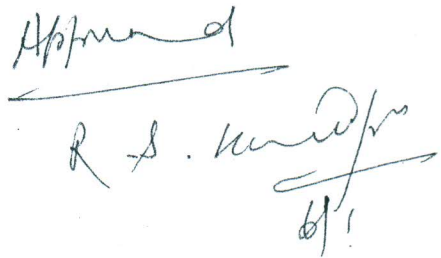 Approved
R. S.
6/1